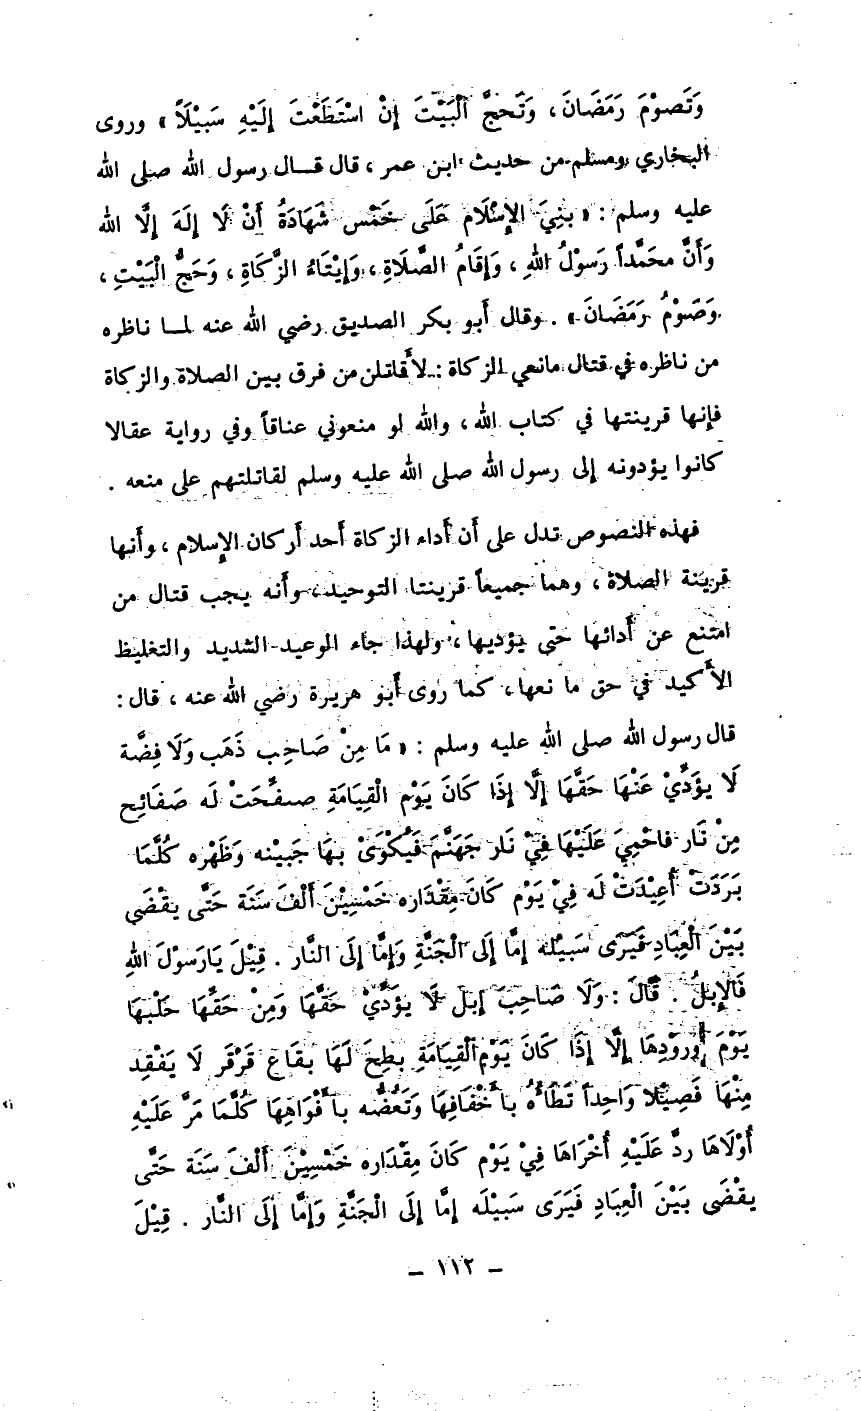 وَتَصوْمَ رَمَضَانَ ، وَتَحجَّ الْبَيْتَ إِنْ اسْتَطَعْتَ إِلَيْهِ سَبِيْلاً » وروى
البخاري ومسلم من حديث ابن عمر ، قال قـــال رسول الله صلى الله
عليه وسلم : « بنِيَ الإِسْلَام عَلَى خَمْس شَهَادَةُ أَنْ لَا إِلَهَ إِلَّا الله
وَأَنَّ محَمَّداً رَسوْلُ اللهِ ، وَإِقَامُ الصَّلَاةِ ، وَإِيْتَاءُ الزَّكَاةِ ، وَحَجُّ الْبَيْتِ ،
وَصَوْمُ رَمَضَانَ » . وقال أبو بكر الصديق رضي الله عنه لمــا ناظره
من ناظره في قتال مانعي الزكاة : لأقاتلن من فرق بين الصلاة والزكاة
فإنها قرينتها في كتاب الله ، والله لو منعوني عناقاً وفي رواية عقالا
كانوا يؤدونه إلى رسول الله صلى الله عليه وسلم لقاتلتهم على منعه .
فهذه النصوص تدل على أن أداء الزكاة أحد أركان الإسلام ، وأنها
قرينة الصلاة ، وهما جميعاً قرينتا التوحيد ، وأنه يجب قتال من
امتنع عن أدائها حتى يؤديها ، ولهذا جاء الوعيد الشديد والتغليظ
الأكيد في حق ما نعها ، كما روى أبو هريرة رضي الله عنه ، قال :
قال رسول الله صلى الله عليه وسلم : « مَا مِنْ صَاحِب ذَهَب وَلَا فِضَّة
لَا يؤَدِّيْ عَنْهَا حَقَّهَا إِلَّا إِذَا كَانَ يَوْم الْقِيَامَةِ صفِّحَتْ لَه صَفَائِح
مِنْ نَار فاحْمِيَ عَلَيْهَا فِيْ نَار جَهَنَّمَ فَيُكْوَىْ بهَا جَبِيْنه وَظَهْره كُلَّمَا
بَرَدَتْ أعِيْدَتْ لَه فِيْ يَوْم كَانَ مِقْدَاره خَمْسِيْنَ أَلْفَ سَنَة حَتَّى يقْضَى
بَيْنَ الْعِبَادِ فَيَرَى سَبِيْله إِمَّا إِلَى الْجَنَّةِ وَإِمَّا إِلَى النَّار . قِيْلَ يَارَسوْلَ اللهِ
فَالإِبلُ . قَالَ : وَلَا صَاحِبَ إِبل لَا يؤَدِّيْ حَقَّهَا وَمِنْ حَقِّهَا حَلْبهَا
يَوْمَ وُروْدِهَا إِلَّا إِذَا كَانَ يَوْم الْقِيَامَةِ بطِحَ لَهَا بقَاع قَرْقَر لَا يَفْقِد
مِنْهَا فَصِيْلا وَاحِداً تَطَأُهُ بأَخْفَافِهَا وَتَعُضُّه بأَفْوَاهِهَا كُلَّمَا مَرَّ عَلَيْهِ
أوْلَاهَا ردَّ عَلَيْهِ أخْرَاهَا فِيْ يَوْم كَانَ مِقْدَاره خَمْسِيْنَ أَلْفَ سَنَة حَتَّى
يقْضَى بَيْنَ الْعِبَادِ فَيَرَى سَبِيْلَه إِمَّا إِلَى الْجَنَّةِ وَإِمَّا إِلَى النَّار . قِيْلَ
– ١١٢ –